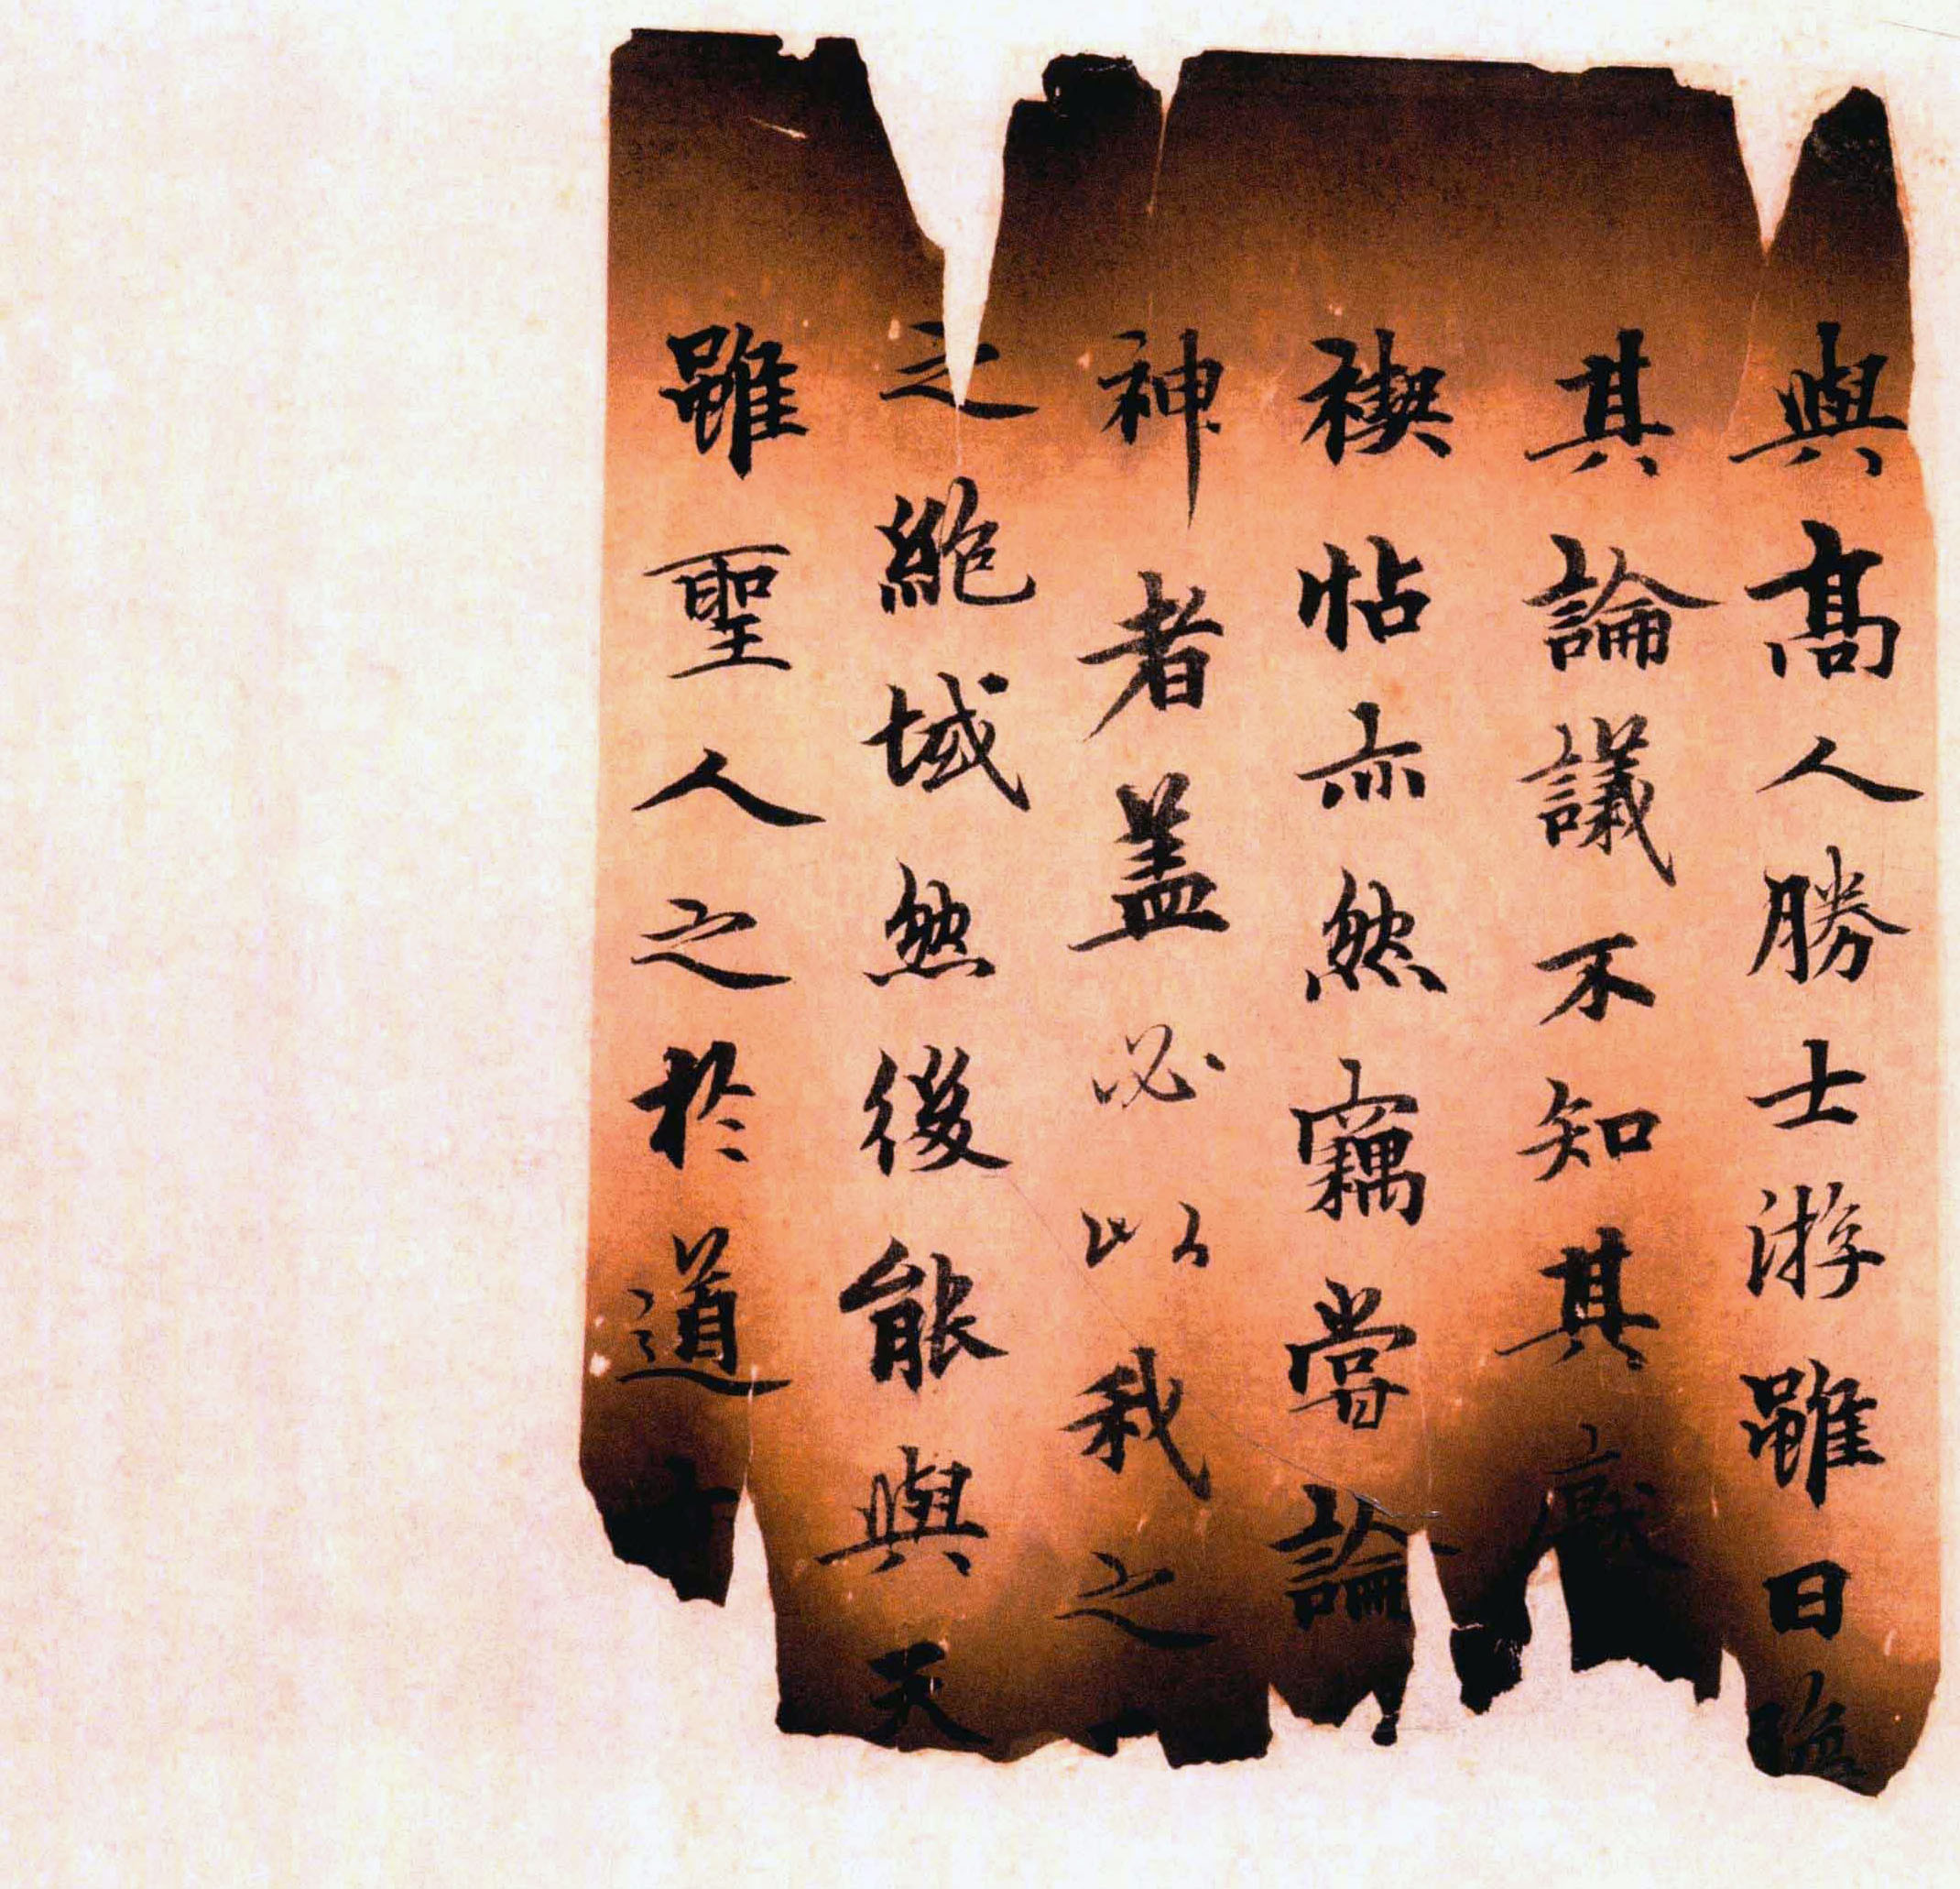 與高人勝士游雖日臨
其論議不知其厭
禊帖亦然竊嘗論
神者蓋必以我之
之絶域然後能與天
雖聖人之於道